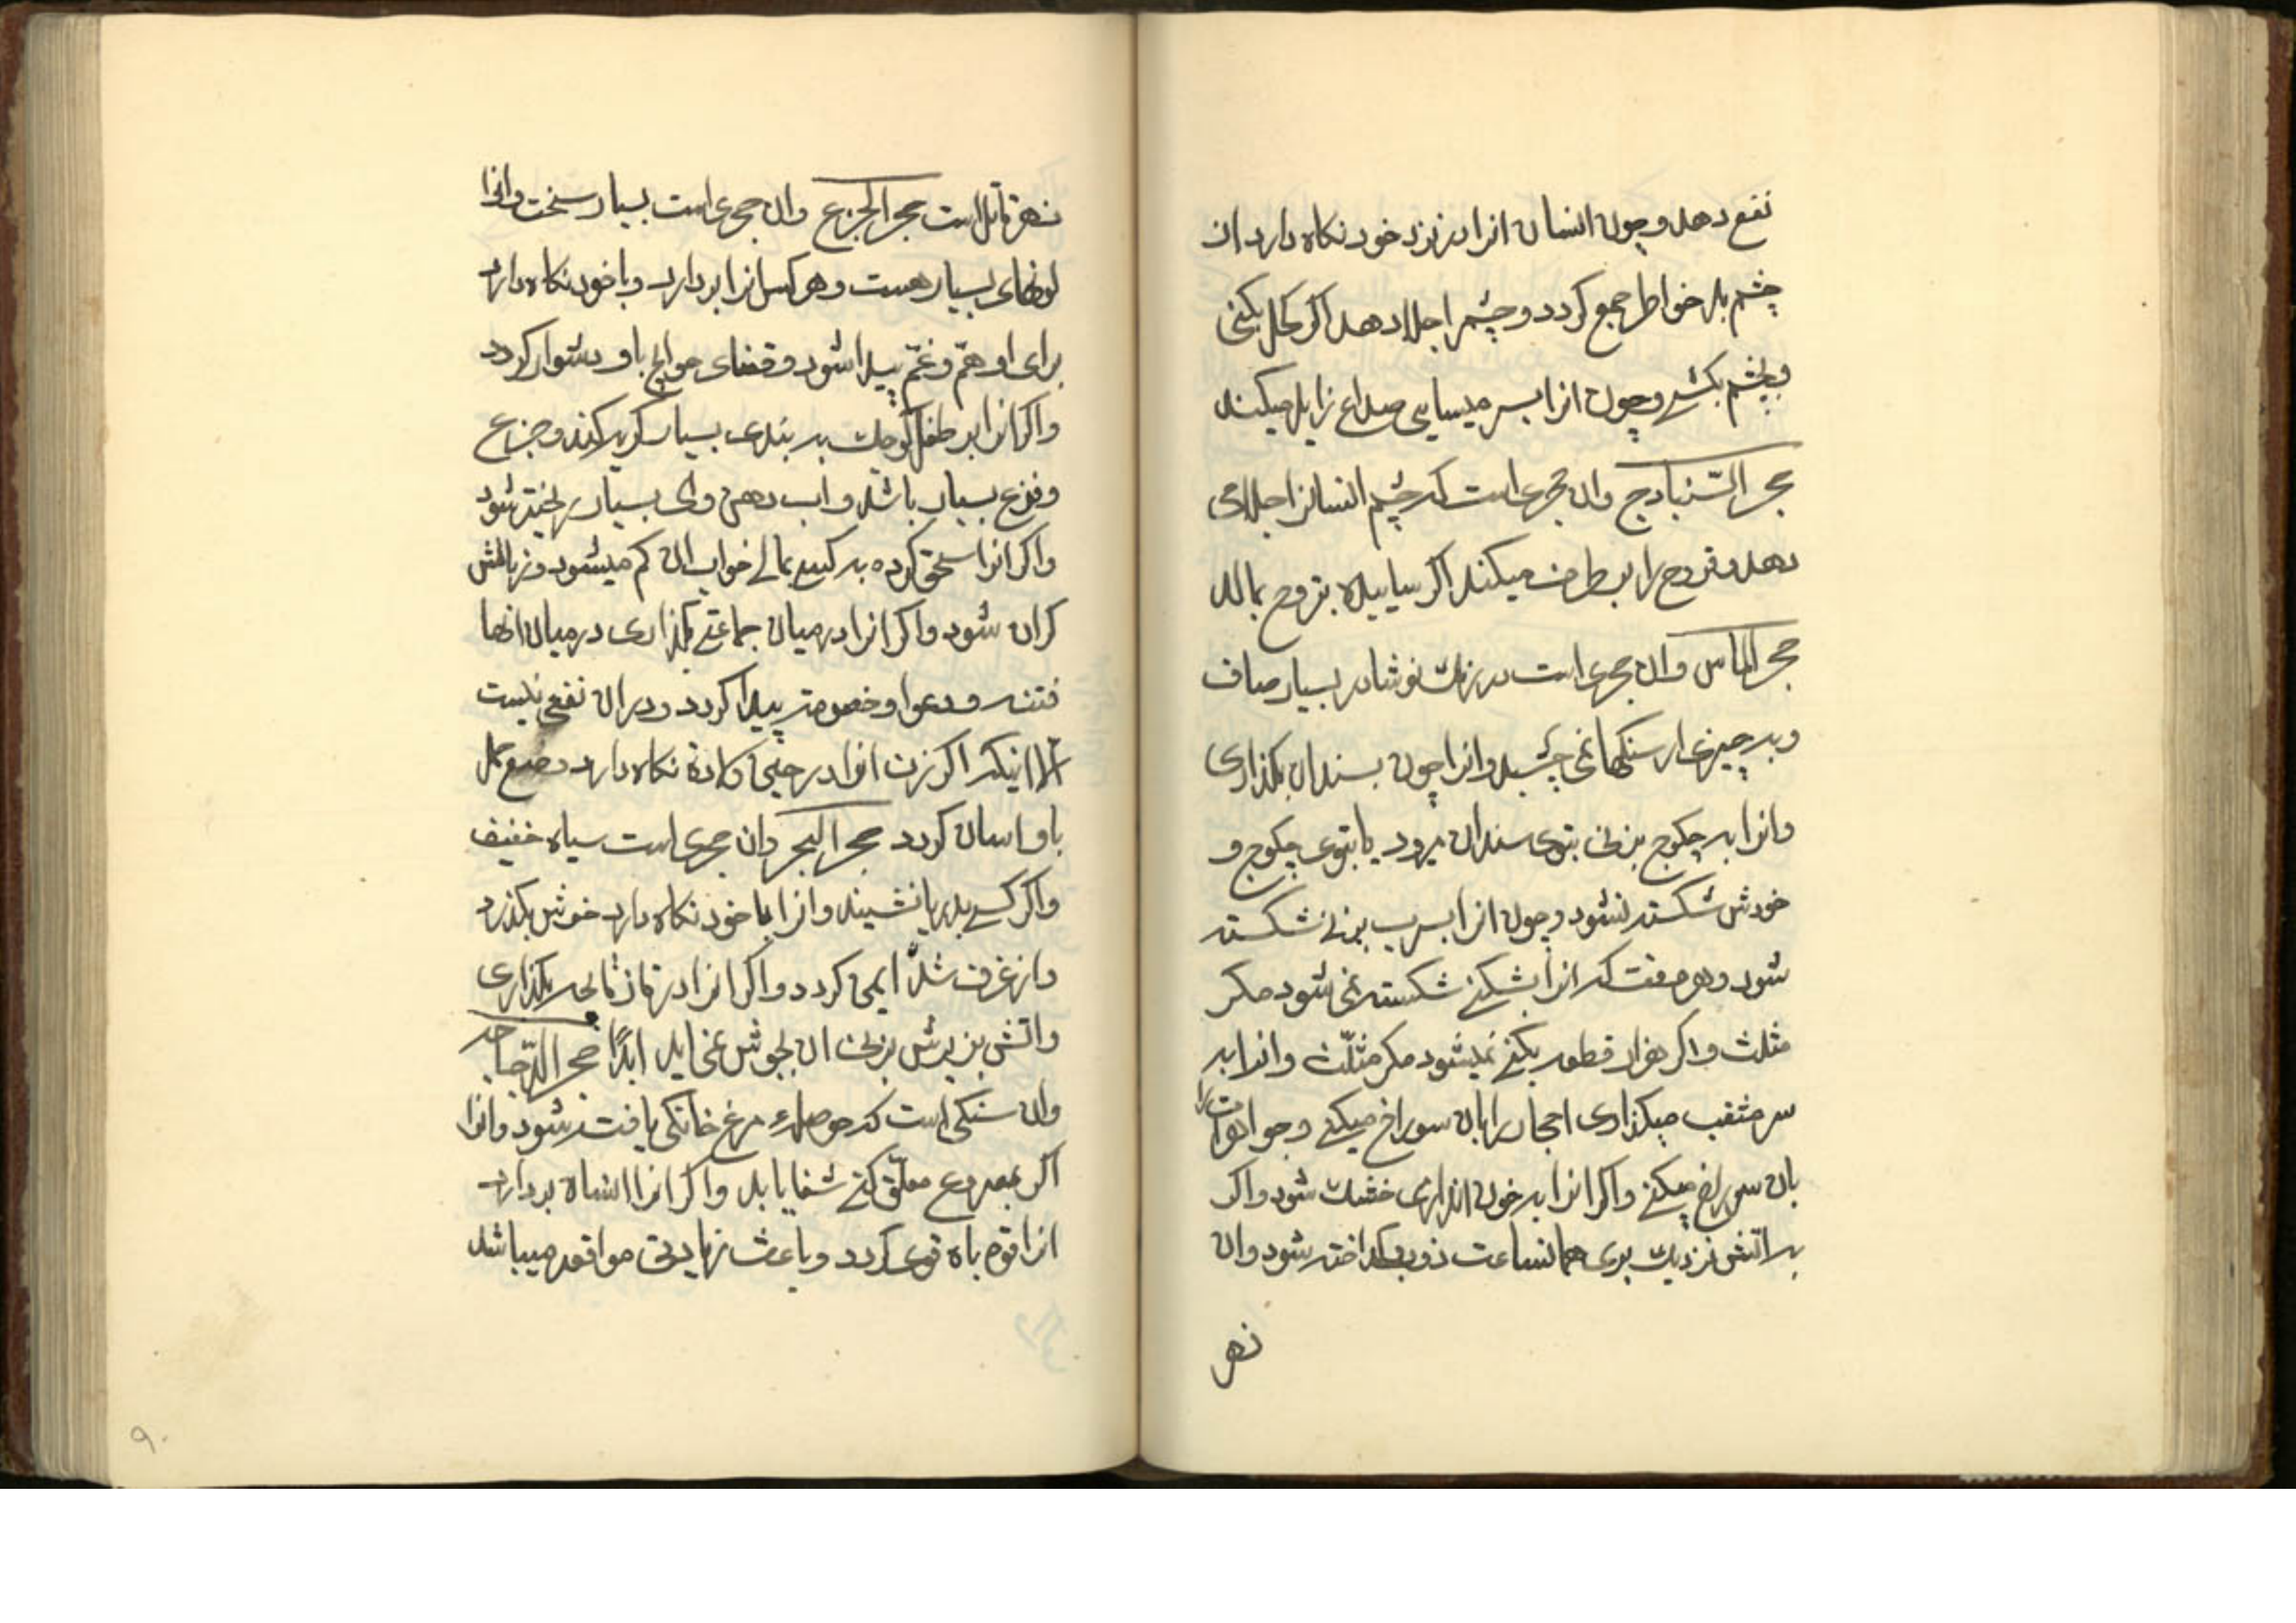 نفع دهد و چون انسان انرا در نزد خود نکاه دارد از
چشم بد خواطر جمع کردد و چشم را جلا دهد اکر کحل بکنی
و بچشم بکشی و چون انرا بسر میسایی صداع زایل میکند
حجر السنبادج وان حجری است که چشم انسانرا جلا می
دهد و قروح را بر طرف میکند اکر ساییده بقروح بمالند
حجر الماس وان حجری است در رنک نوشادر بسیار صاف
و بر چیزی از سنکها نمی چسبد و انرا چون بسندان بکذاری
وانرا به چکوج بزنی بتوی سندان میرود یا بتوی چکوج و
خودش شکسته نشود و چون انرا بسرب بزنی شکسته
شود و هر صفت که انرا بشکنی شکسته نمی شود مکر
مثلث و اکر هزار قطعه بکنی نمیشود مکر مثلّث وانرا به
سر مثقب میکذاری احجار را بان سوراخ میکنی و جواهرات را
بان سوراخ میکنی و اکر انرا به خون اندازی خشک شود و اکر
به اتش نزدیک بری همانساعت ذوب کداخته شود وان
زهر
زهر قاتل است حجر الجزع وان حجری است بسیار سخت وانرا
لونهای بسیار هست و هر کس انرا بردارد و با خود نکاه دارد
برای او همّ و غمّ پیدا شود و قضای حوایج باو دشوار کردد
و اکر انرا بر طفل کوچک بر بندی بسیار کریه کند و جزع
و فزع بسیار باشد و اب دهن وی بسیار ریخته شود
و اکر انرا سحق کرده به کسی بمالی خواب ان کم میشود و زبانش
کران شود و اکر انرا در میان جماعتی بکذاری در میان انها
فتنه و دعوا و خصومت پیدا کردد و در ان نفعی نیست
الا اینکه اکر زن انرا در حین ولادة نکاه دارد وضع حمل
باو اسان کردد حجر البحر وان حجری است سیاه خفیف
و اکر کسی بدریا نشیند و انرا با خود نکاه دارد خوش بکذرد
و از غرق شدن ایمن کردد و اکر انرا در بکذاری
و اتش بزیرش بزنی ان بجوش نمی اید ابدًا حجر الدّجاجه
وان سنکی است که حوصلهء مرغ خانکی یافت شود وانرا
اکر بمصروع معلّق کنی شفا یابد و اکر انرا انسان بردارد
انرا قوه باه قوی کردد و باعث زیادتی مواقعه میباشد
۹۰